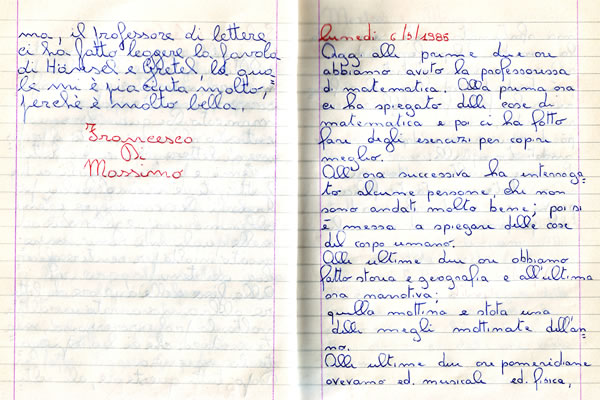 ma, il professore di lettere
ci ha fatto leggere la favola
di Hänsel e Gretel, la qua-
le mi è piaciuta molto,
perchè è molto bella.
Francesco
Di
Massimo
lunedì 6/5/1985
Oggi alle prime due ore
abbiamo avuto la professoressa
di matematica. Alla prima ora
ci ha spiegato delle cose di
matematica e poi ci ha fatto
fare degli esercizi per capire
meglio.
All'ora successiva ha interroga-
to alcune persone, che non
sono andati molto bene; poi si
è messa a spiegare delle cose
del corpo umano.
Alle ultime due ore abbiamo
fatto storia e geografia e all'ultima
ora narrativa;
quella mattina è stata una
delle megli mattinate dell'an-
no.
Alle ultime due ore pomeridiane
avevamo ed. musicale ed. fisica,